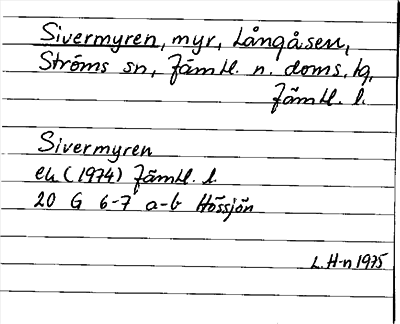 Sivermyren, myr, Långåsen,
Ströms sn, Jämtl. n. doms. tg,
Jämtl. l.
Sivermyren
ek (1974) Jämtl. l.
20 G 6-7 a-b Hössjön
L. H-n 1975